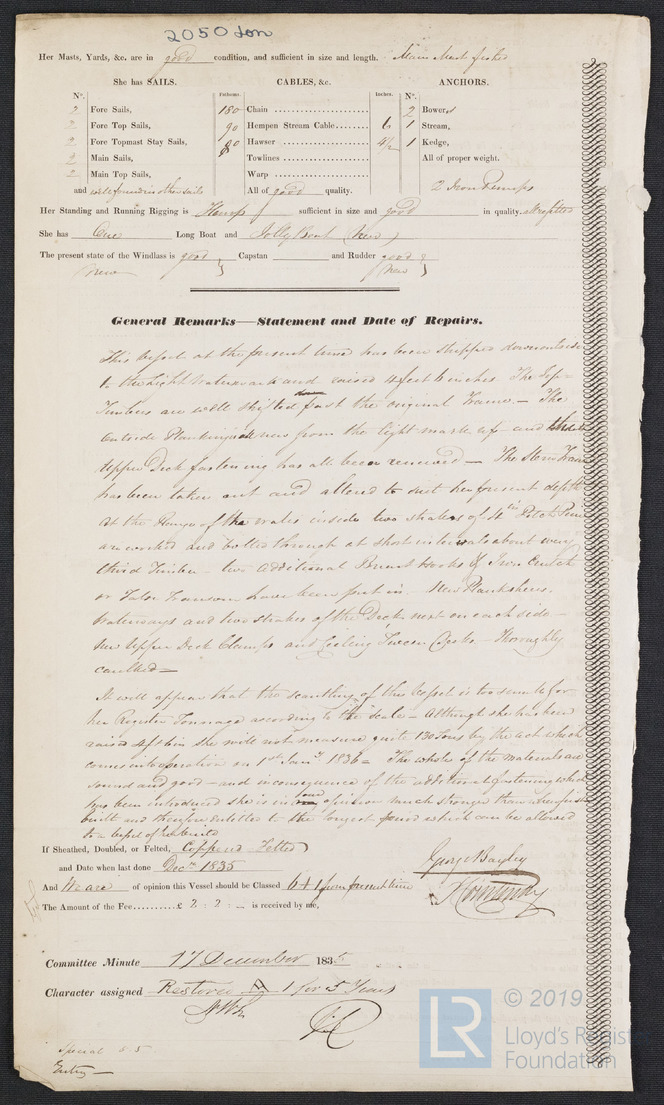 2050 ton
Her Masts, Yards, &c. are in good condition, and sufficient in size and length. Main Mast fished
She has SAILS. CABLES, &c. ANCHORS.
N°. Fathoms. Inches. N°.
2 Fore Sails, 180 Chain 2 Bowers,
2 Fore Top Sails, 90 Hempen Stream Cable 6 1 Stream,
2 Fore Topmast Stay Sails, Hawser 4½ 1 Kedge,
2 Main Sails, Towlines All of proper weight.
2 Main Top Sails, Warp
and well found in other sails All of good quality. 2 Iron Pumps
Her Standing and Running Rigging is Hemp sufficient in size and good in quality.
She has One Long Boat and Jolly Boat (New)
The present state of the Windlass is good Capstan and Rudder good &
new new
General Remarks—Statement and Date of Repairs.
This vessel at the present time has been stripped
to the light Watermark and raised 4 feet 6 inches The Top=
Timbers are well shifted past the original Frame — The
outside Planking all new from the light mark up and
Upper Deck fastening has all been renewed — The Stern Frame
has been taken out and altered to suit her present depth
At the of the wales inside two strakes of 4 in Pitch Pine
are worked and bolted through at short intervals about every
third Timber — two additional Breast Hooks & Iron Crutch
or Transom have been put in. New Planksheers,
Waterways and two strakes of the Deck next on each side —
New Upper Deck Clamps and Ceiling Tween Decks — Thoroughly
caulked =
It will appear that the scantling of this Vessel is too small for
her Register Tonnage according to the scale — Although she has been
raised 4ft 6in she will not measure quite 130 Tons by the act which
comes into operation on 1st Jany 1836 = The whole of the materials are
sound and good — and in consequence of the additional fastening which
has been introduced she is in our opinion much stronger than when first
built and therefore entitled to the longest period which can be allowed
to a vessel of her
If Sheathed, Doubled, or Felted, Coppered Felted
and Date when last done Decr 1835
And We are of opinion this Vessel should be Classed from present time
The Amount of the Fee £ 2 : 2 : — is received by me,
George Bayley
Committee Minute 17 December 1835
Character assigned Restored A 1 for 5 Years
Special S.S
Entry —
LR © 2019
Lloyd's Register
Foundation